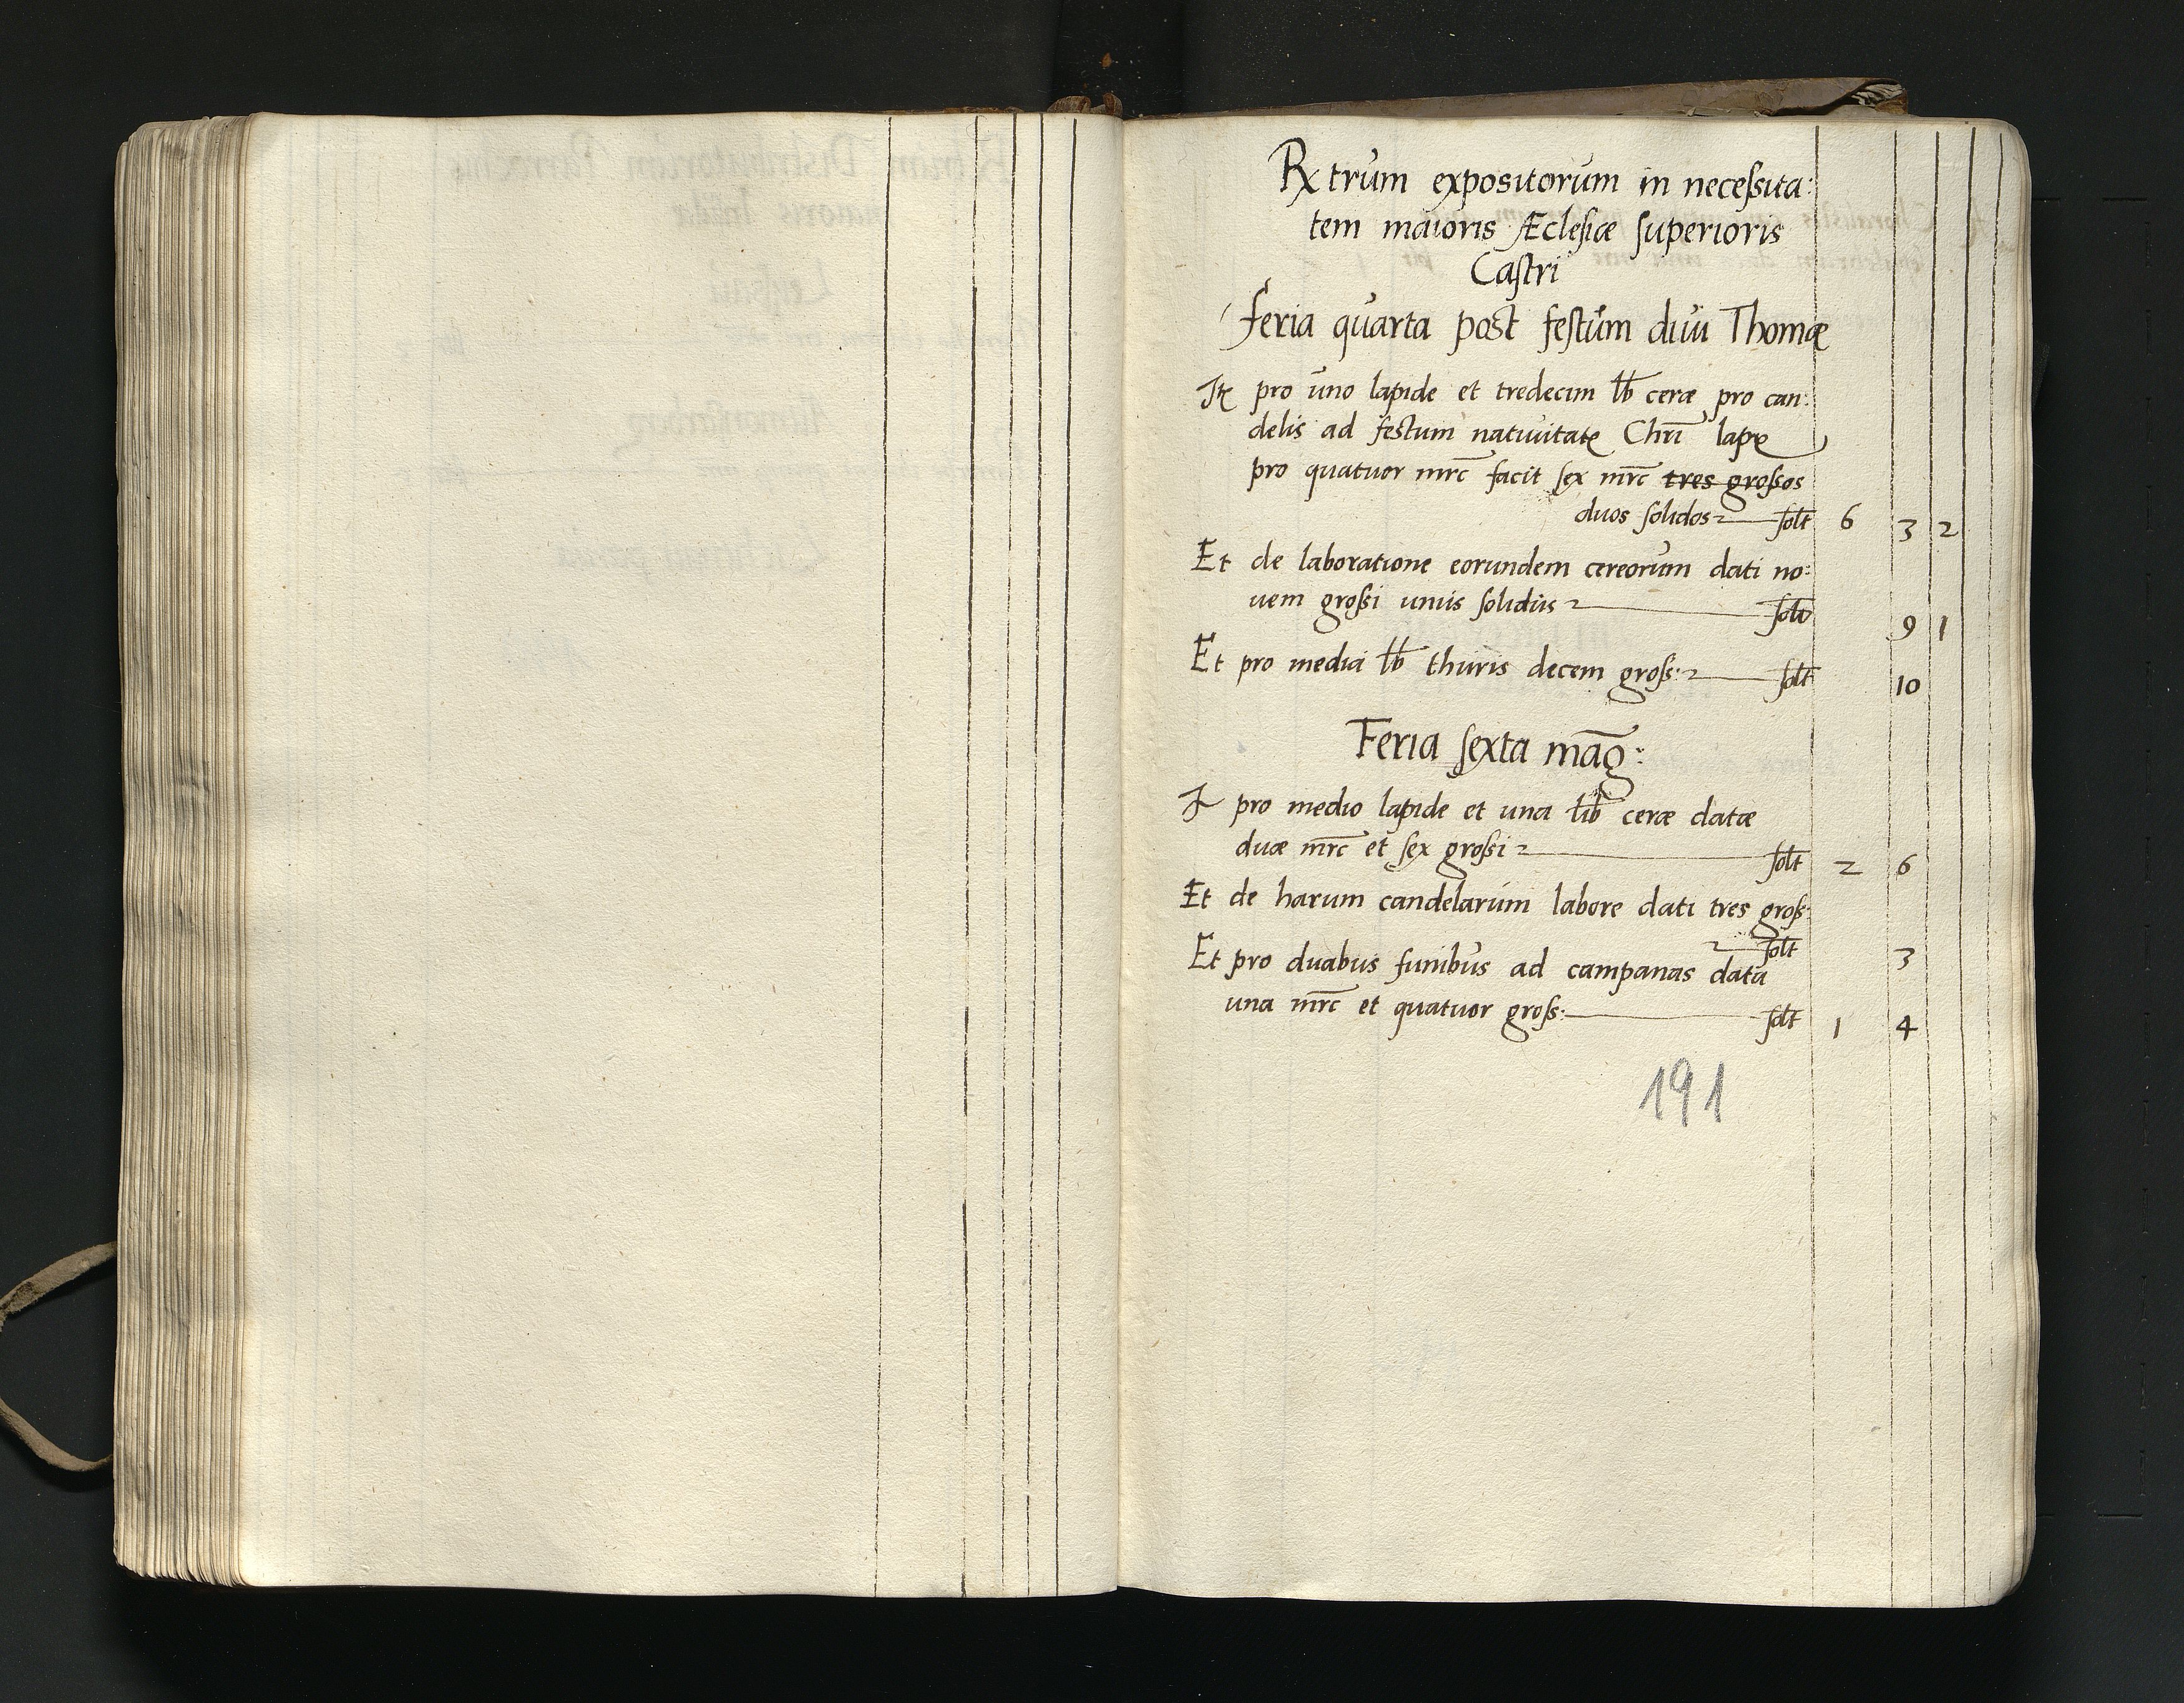 Rx trum expositorum in necessita:
tem maioris Æclesiæ superioris
Castri
feria quarta post festum divi Thomæ
It pro uno lapide et tredecim lb ceræ pro can:
delis ad festum nativitatꝭ Chri̅ lapꝭ
pro quatuor mrc̅ facit sex mrc̅ tres grossos
duos solidos solt 6 3 2
Et de laboratione eorundem cereorum dati no:
uem grossi unus solidus solt 9 1
Et pro media lb thuris decem gross: solt 10
Feria sexta mag̅:
It pro medio lapide et una lib ceræ datæ
duæ mrc̅ et sex grossi solt 2 6
Et de harum candelarum labore dati tres gross:
solt 3
Et pro duabus funibus ad campanas data
una mrc̅ et quatuor gross: solt 1 4
191